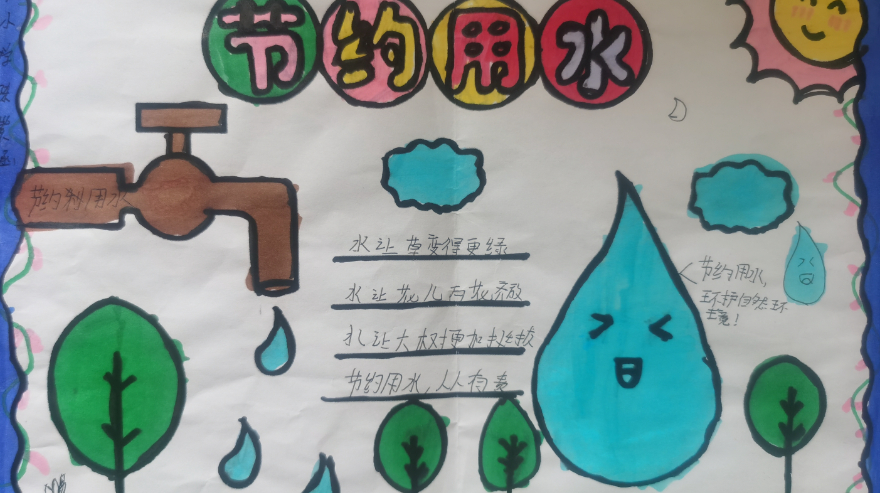 节约用水
节约利用水
水让草变得更绿
水让花儿为花添放
水让大树更加
节约用水,人人有责
节约用水,
环护自然环
境!